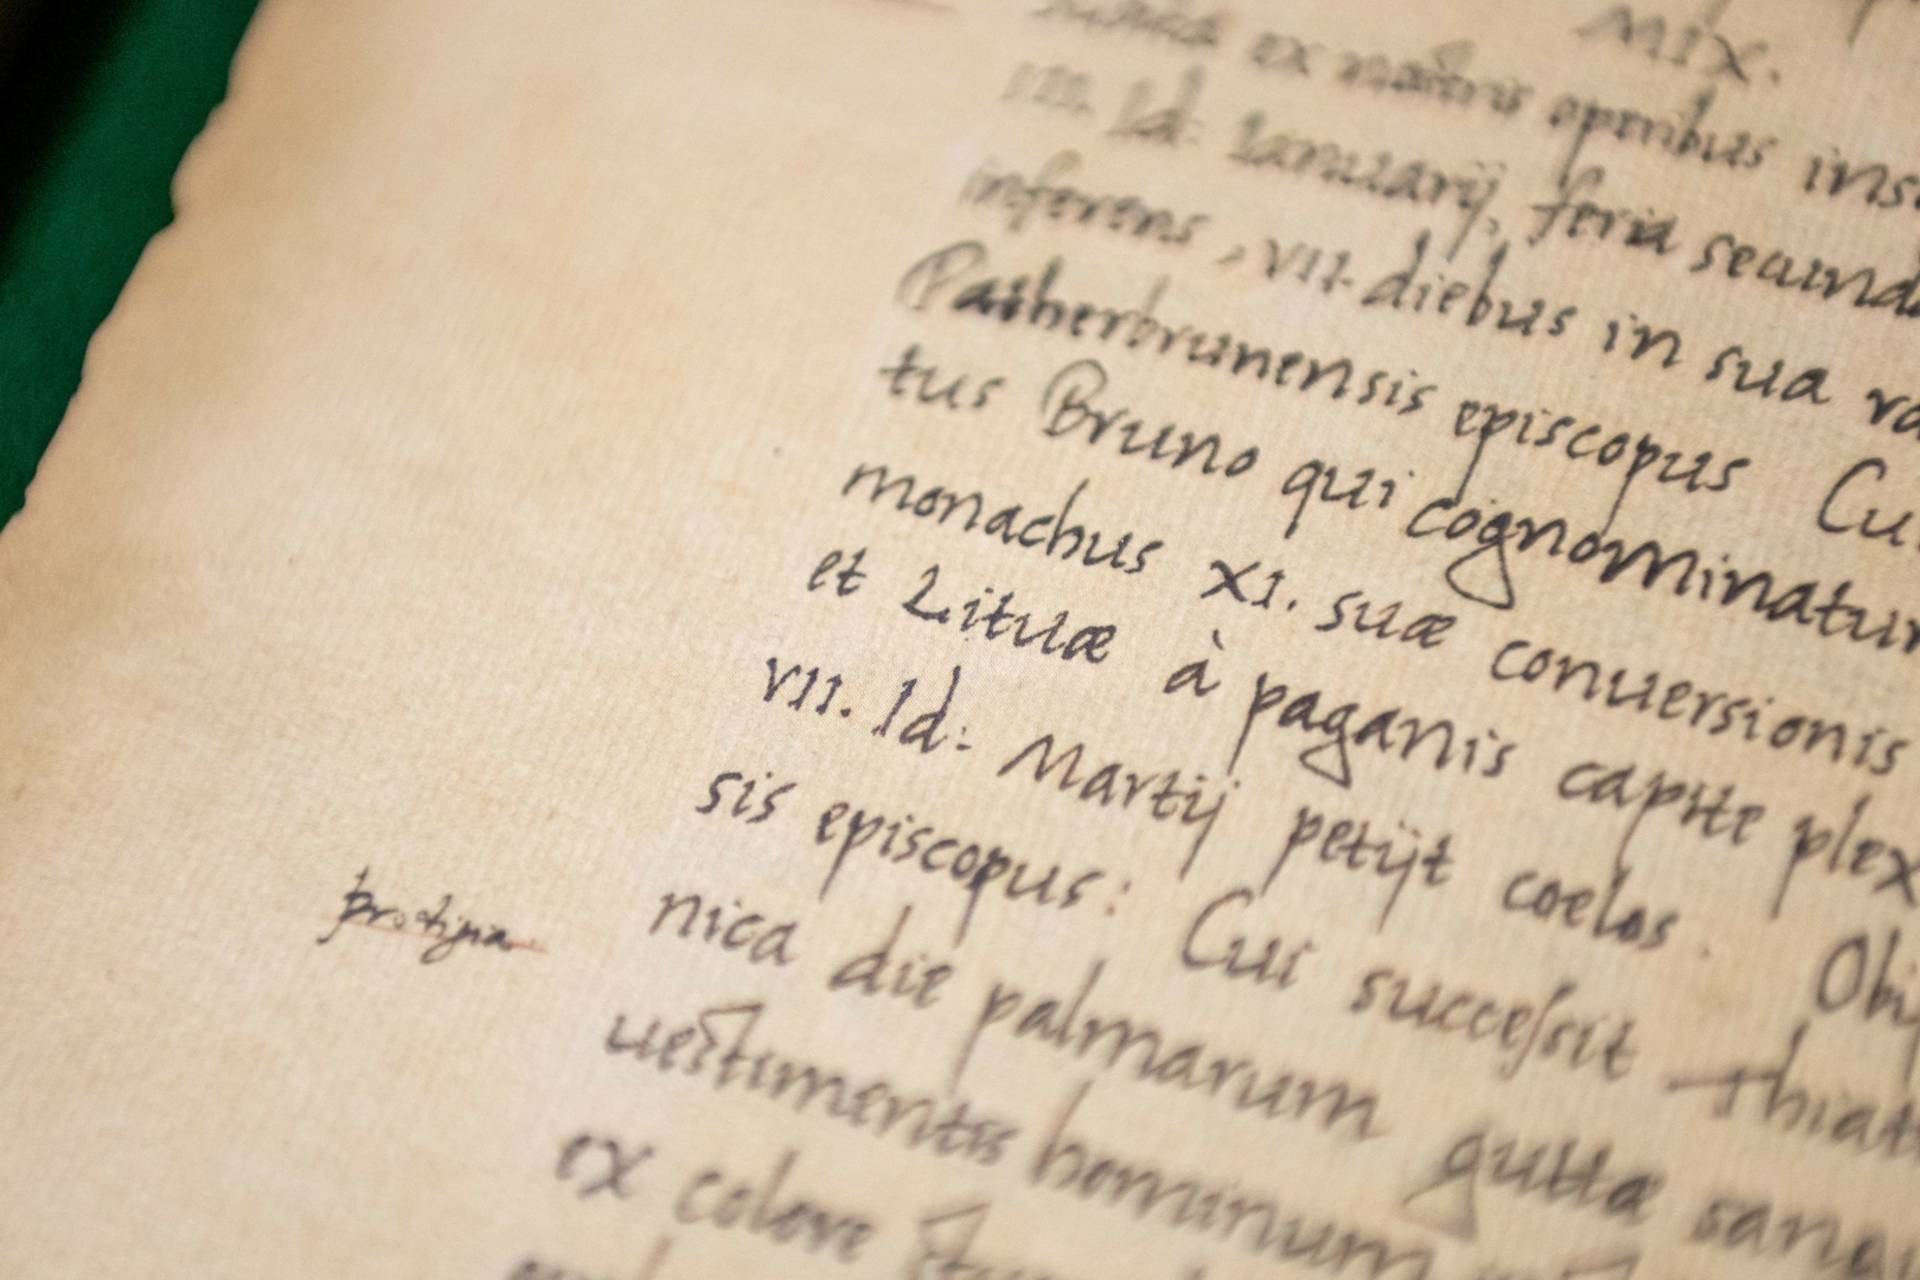 MIX.
ex operibus ins
III. Id: Ianuarij, feria secund
inferens, VII. diebus in sua
Patherbrunensis episcopus Cu
tus Bruno qui cognominatur
monachus XI. suæ conuersionis
et Lituæ à paganis capite plex
VII. Id: Martij petijt coelos. Obi
sis episcopus: Cui succeſsit Thiat
nica die palmarum guttæ sang
prodigia
ueſtimentis hominum
ex colore